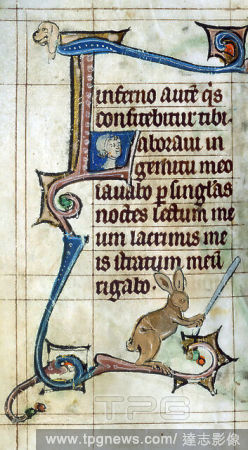 inferno autē q̄s
confitebitur tibi
Laboraui in
gemitu meo
lauabo p singlās
noctes lectum me
um lacrimis me
is stratum meū
rigabo.
TPG
www.tpgnews.com/ 達志影像